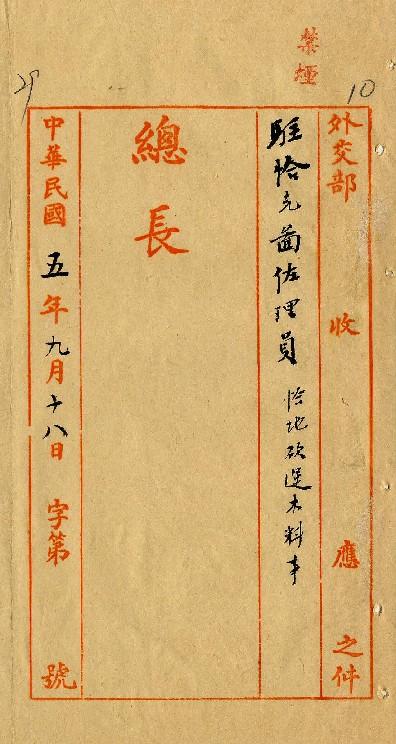 禁煙
10
外交部 收 應 之件
駐恰克啚佐理員 恰地砍運木料事
總長
中華民國五年九月十八日 字第 號